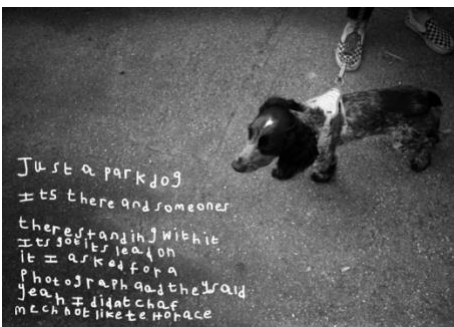 Just a park dog
Its there and someones
therestanding with it
Its got its lead on
it I asked for a
photograph and they said
yeah I didnt chat
mech not like te Horace